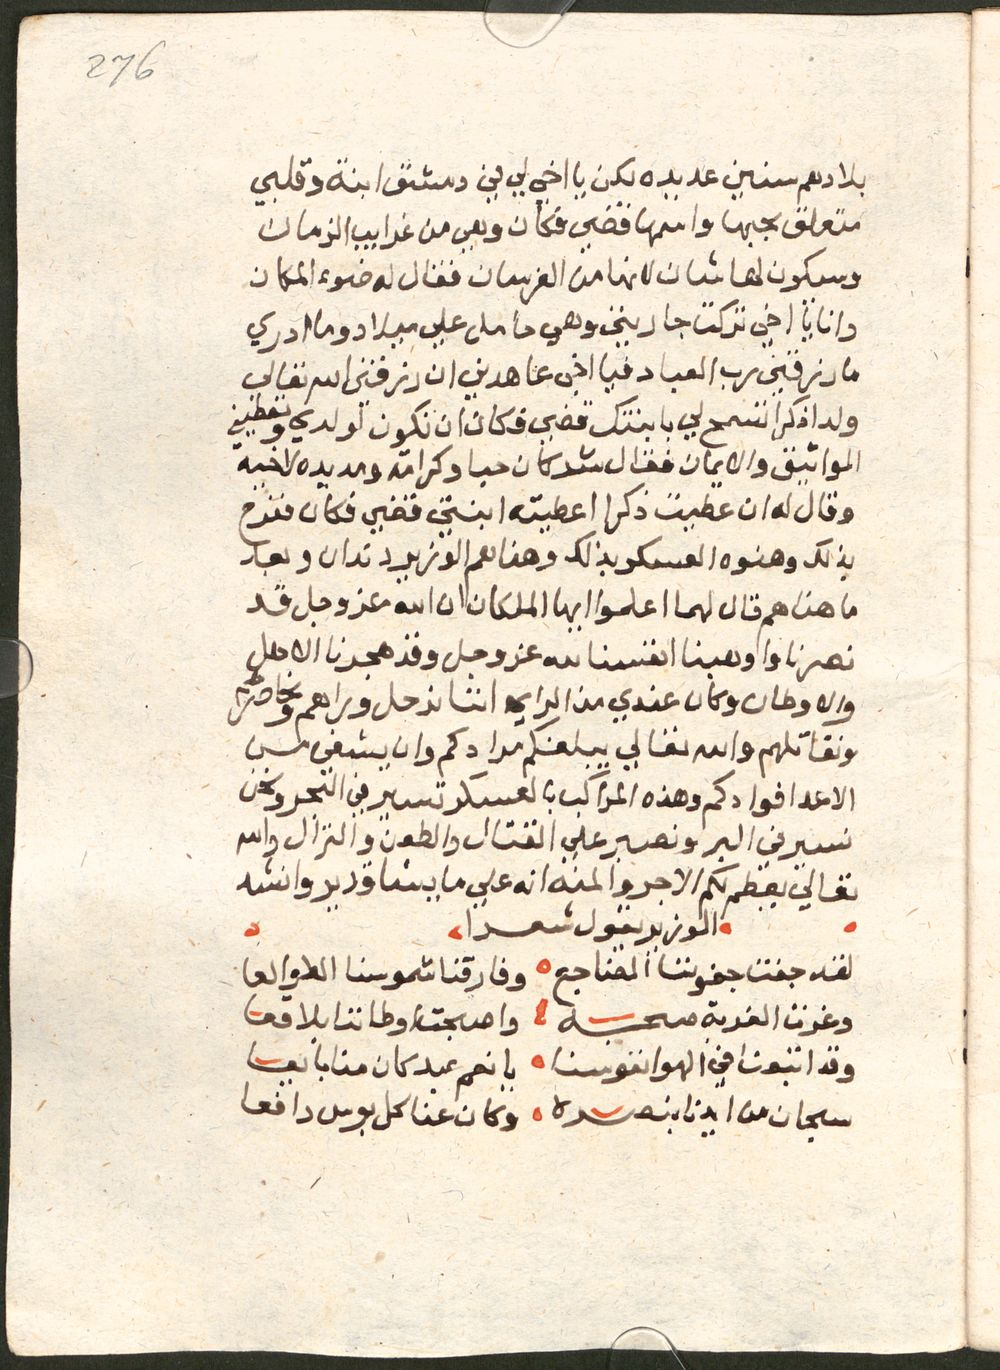 276
بلادهم سنين عديده لكن يا اخي لي في دمشق ابنة وقلبي
متعلق بحبها واسمها قضي فكان وهي من غرايب الزمان
وسيكون لها شان لانها من الفرسان فقال له ضوء المكان
وانا يا اخي تركت جاريتي وهي حامل علي ميلاد وما ادري
ما رزقني رب العباد فيا اخي عاهدني ان رزقني الله تعالي
ولدا ذكرا تسمح لي بابنتك قضي فكان ان تكون لولدي وتعطيني
المواثيق والايمان فقال شركان حبا وكرامة ومد يده لاخيه
وقال له ان عطيت ذكرا اعطيته ابنتي قضي فكان ففرح
بذلك وهنوه العسكر بذلك وهناهم الوزير دندان وبعد
ما هناهم قال لهما اعلموا ايها الملكان ان الله عز وجل قد
نصرنا واوهبنا انفسنا لله عز وجل وقد هجرنا الاهل
والاوطان وكان عندي من الراي اننا نرحل وراهم ونحاصرهم
ونقاتلهم والله تعالي يبلغكم مرادكم وان يشفي من
الاعدا فوادكم وهذه المراكب بالعسكر تسير في البحر ونحن
نسير في البر ونصير علي القتال والطعن والنزال والله
تعالي يعظم لكم الاجر والمنه انه علي ما يشا قدير وانشد
الوزير يقول شعرا
لقد جفت جفوننا المضاجع وفارقنا شموسنا الطوالعا
وغرت الغربة صحبه واصبحت اوطاننا بلاقعا
وقد اتبعت في الهوا نفوسنا يا نعم عبد كان منا بايعا
سبحان من ايدنا بنصره وكان عنا كل بوس دافعا